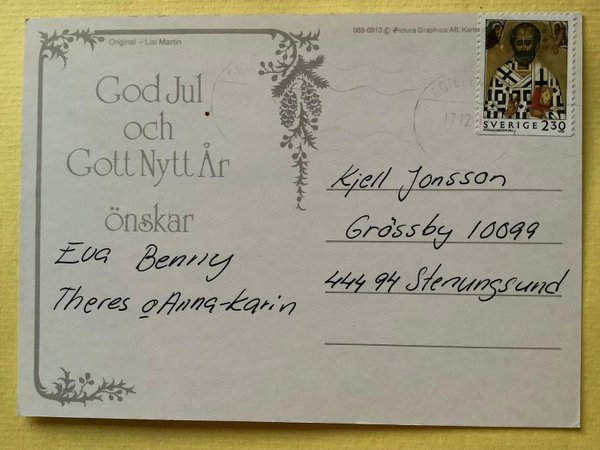 Original – Lisi Martin
088-0913 © Pictura Graphica AB,
God Jul
och
Gott Nytt År
önskar
Eva Benny
Theres o Anna-Karin
17 12
SVERIGE 2.30
Kjell Jonsson
Grössby 10099
444 94 Stenungsund